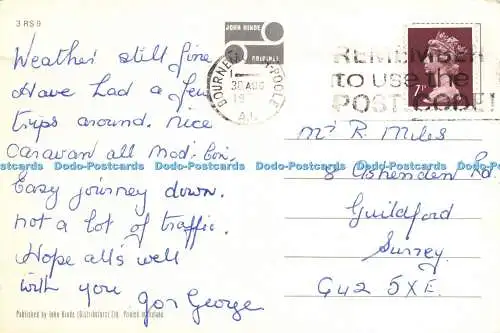 3 RS 9
JOHN HINDE
ORIGINAL
BOURNEMOUTH-POOLE
30 AUG
REMEMBER
to use the
POSTCODE!
7P
Weather still fine
Have had a few
trips around. nice
Caravan all mod: Con.
Easy journey down.
not a lot of traffic.
Hope all's well
with you
George
Mr R. Miles
8 Ashenden Rd.
Guildford
Surrey.
GU2 5XE.
Dodo-Postcards Dodo-Postcards Dodo-Postcards Dodo-Postcards Dodo-Postcards
Published by John Hinde (Distributors) Ltd. Printed in Ireland.